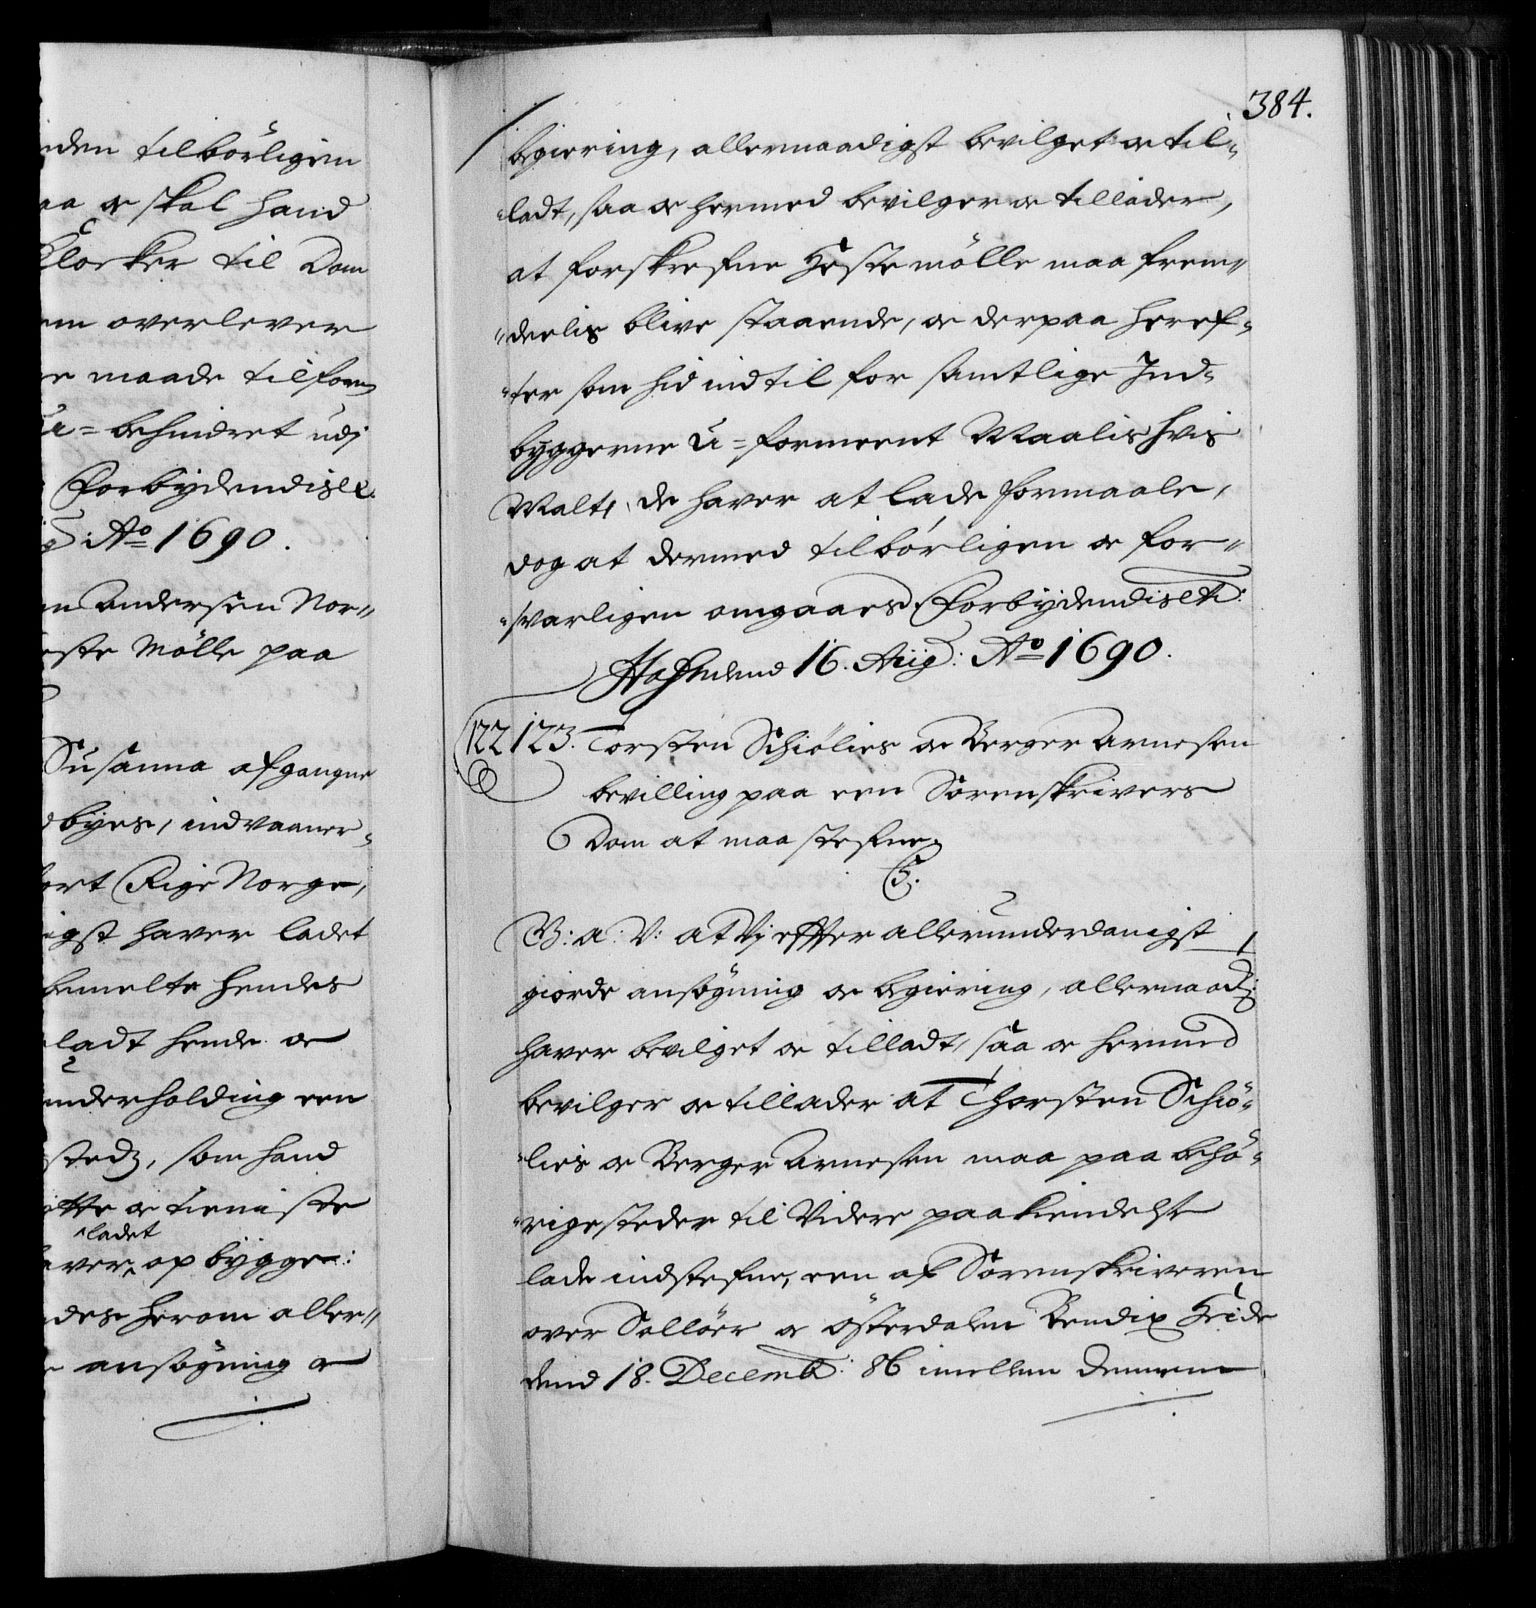 nden tilbörligen
aa og skal hand
Clocker til Dom
em overlever
e maade tilforn
u=behindret udj
Forbydendis &c.
Ao 1690.
n Andersen Nor-
este Mölle paa
Susanna afgangne
byes, indvaaner-
ort Rige Norge,
igst haver ladet
bemelte hendes
ladt hende og
underholding een
sted, som hand
tte og tieniste
ladet
aver opbygge:
des herom aller-
ansögning og
384.
begiering, allernaadigst bevilget og til-
ladt, saa og hermed bevilger og tillader,
at forskrefne Hestemölle maa frem-
deelis blive staaende, og derpaa heref-
ter som hid indtil for samtlige Ind-
byggerne u=formeent Maalis hvis
Malt, de haver at lade formaale,
dog at dermed tilbörligen og for-
svarligen omgaaes, Forbydendis &c:
Hafn dend 16. Aug: Ao 1690.
122 123. Torsten Schiölies og Berger Arnesen
bevilling paa een Sorenskrivers
Dom at maa stefne
C5.
G: a: V: at Vj effter allerunderdanigst
giorde ansögning og begiering, allernaad:
haver bevilget og tilladt, saa og hermed
bevilger og tillader at Thorsten Schiö-
lies og Berger Arnesen maa paa behö-
rige steder til Videre paakiendelse
lade indstefne, een af Sorenskriveren
over Sollöer og Österdalen Bendix Heide
dend 18. Decemb: 86 imellem dennem